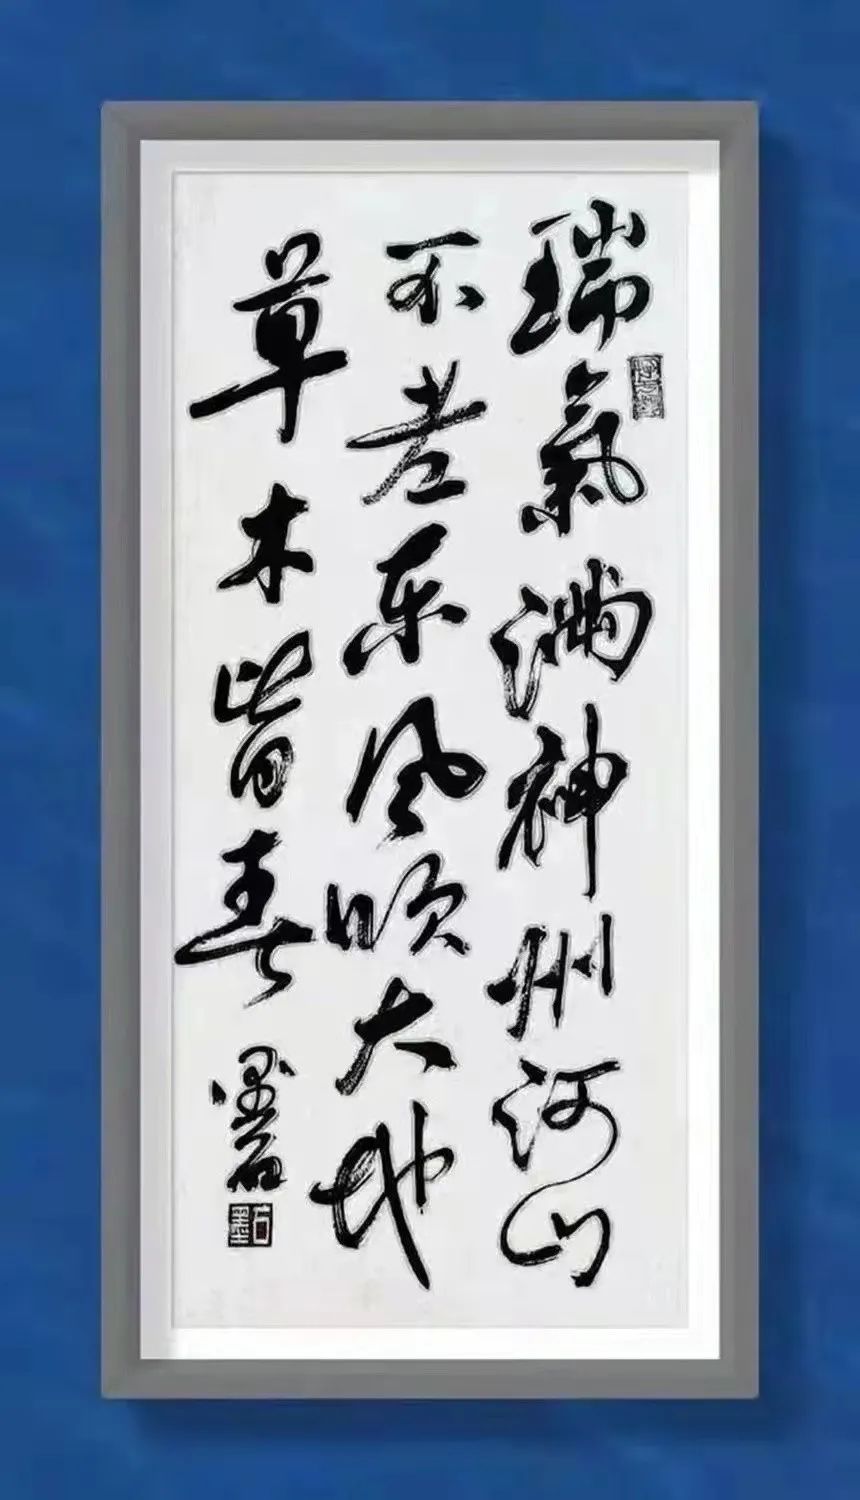 瑞氣满神州河山
不老东风顺大地
草木皆春
墨石
石墨